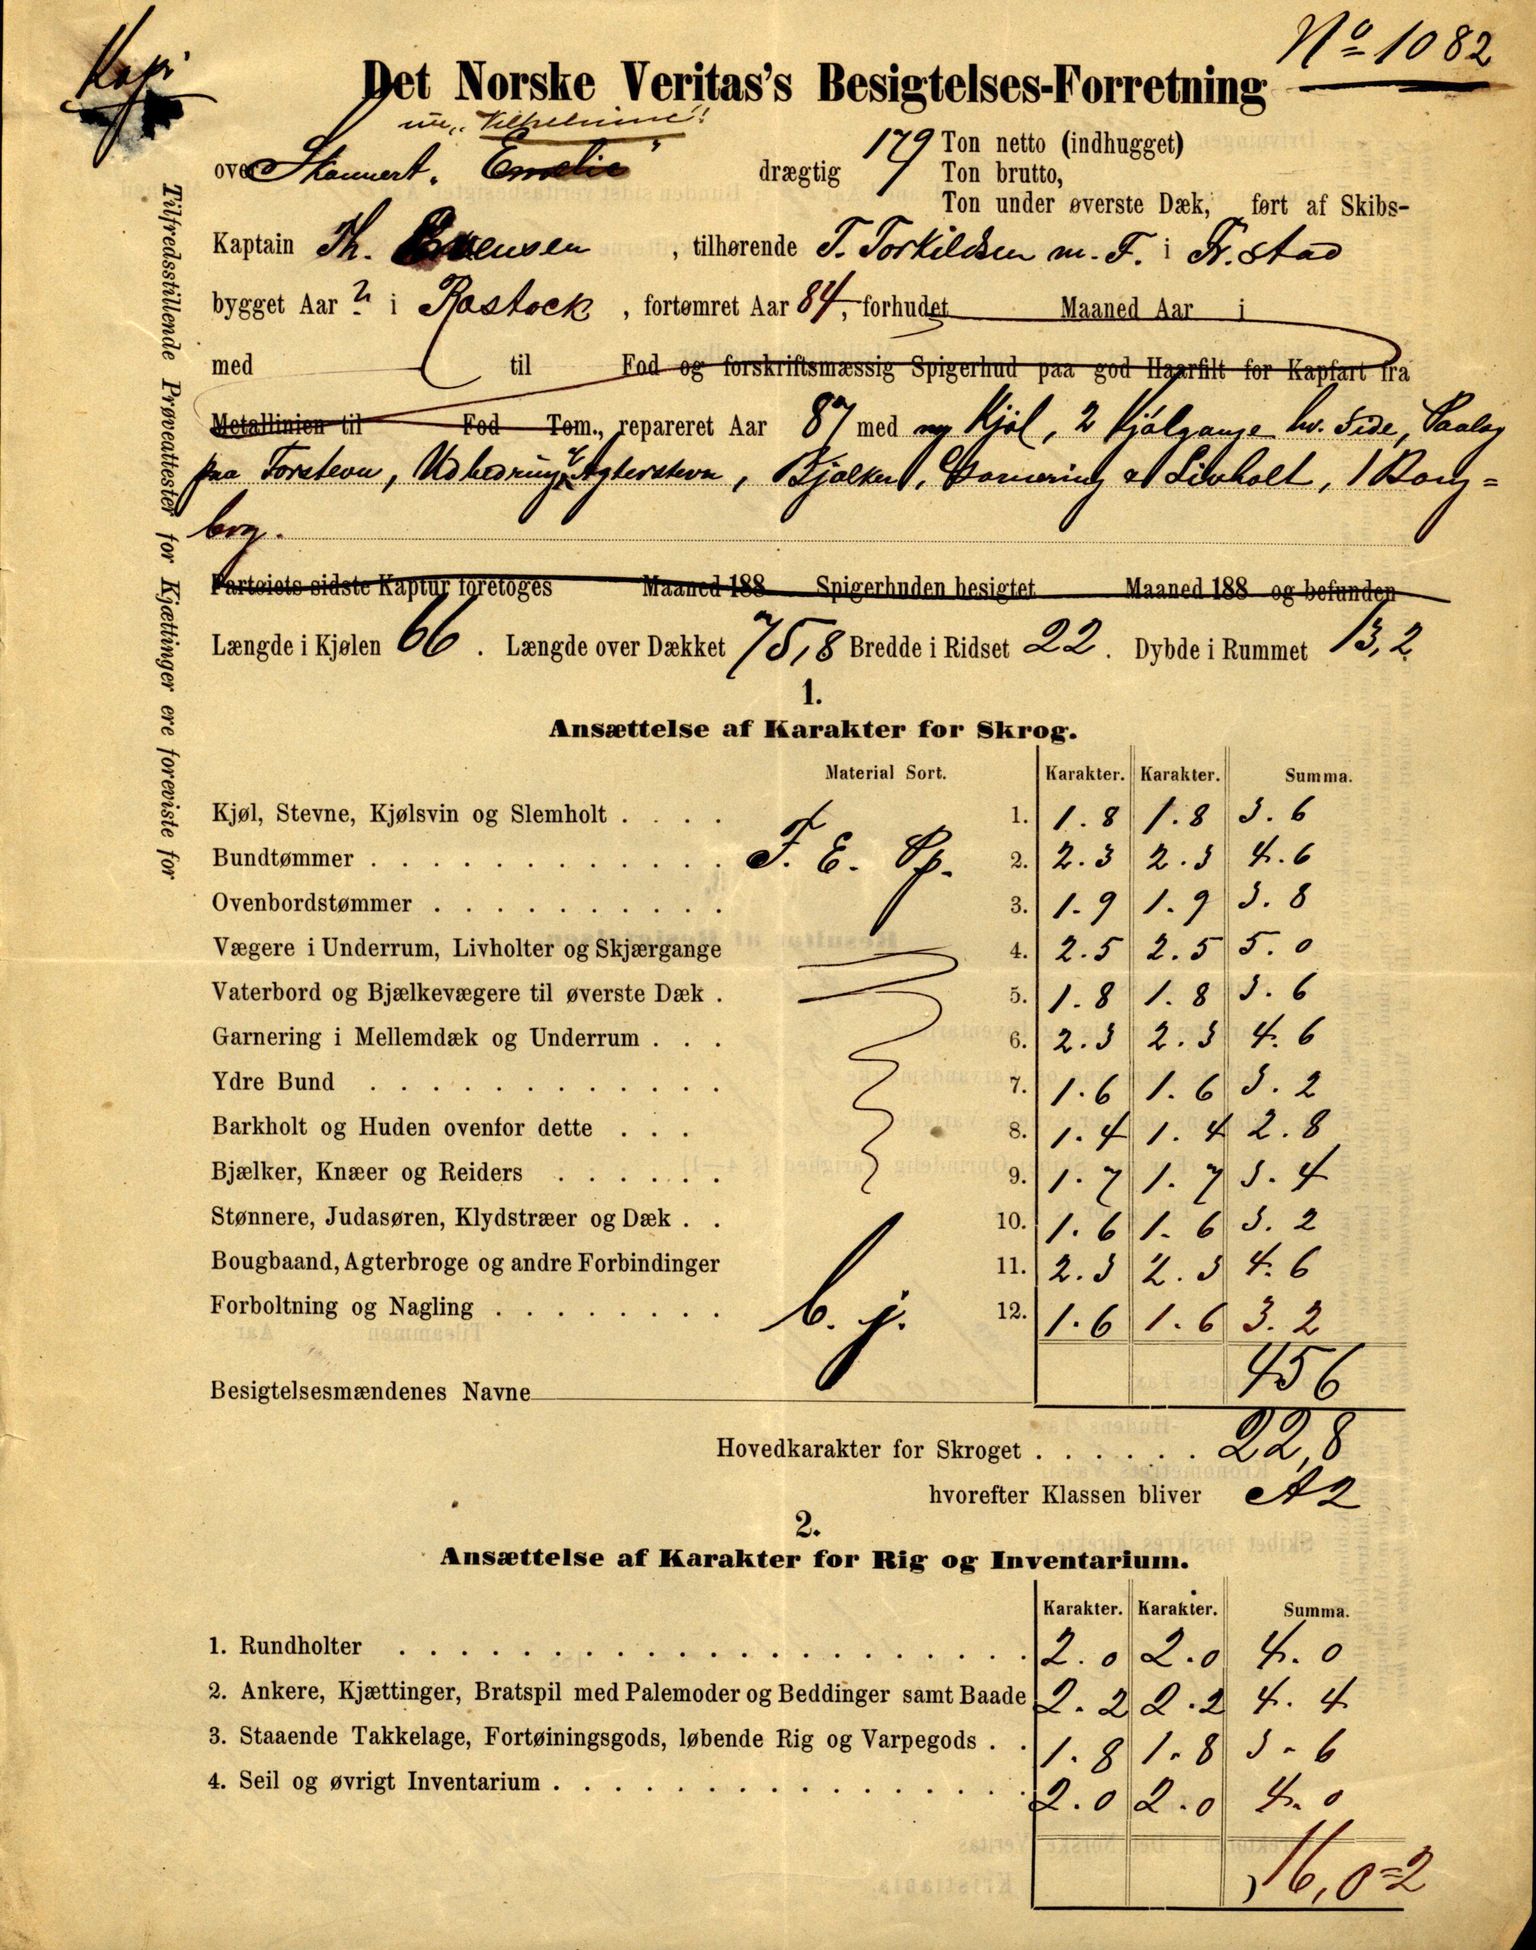 Kopi
No 1082
Det Norske Veritas's Besigtelses-Forretning
nu „Vilhelmine"
over Skonnert. Emelie" drægtig 179 Ton netto (indhugget)
Ton brutto,
Ton under øverste Dæk, ført af Skibs-
Kaptain Th. Evensen, tilhørende T. Torkildsen m. F. i Fr.stad
bygget Aar ? i Rostock, fortømret Aar 84, forhudet Maaned Aar i
med til Fod og forskriftsmæssig Spigerhud paa god Haarfilt for Kapfart fra
Metallinien til Fod Tom., repareret Aar 87 med ny Kjøl, 2 Kjølgange hv. Side, Paalag
paa Forstevn, Udbedring af Agterstevn, Bjælker, Garnering & Livholt, 1 Boug=
brog.
Partoiets sidste Kaptur foretoges Maaned 188 Spigerhuden besigtet Maaned 188 og befunden
Længde i Kjølen 66. Længde over Dækket 75,8 Bredde i Ridset 22. Dybde i Rummet 13,2
Tilfredsstillende Prøveattester for Kjættinger ere foreviste for
1.
Ansættelse af Karakter for Skrog.
Material Sort. Karakter. Karakter. Summa.
Kjøl, Stevne, Kjølsvin og Slemholt . . . . 1. 1.8 1.8 3.6
Bundtømmer . . . . . . . . . . . . F. E. Pp. 2. 2.3 2.3 4.6
Ovenbordstømmer . . . . . . . . . . 3. 1.9 1.9 3.8
Vægere i Underrum, Livholter og Skjærgange 4. 2.5 2.5 5.0
Vaterbord og Bjælkevægere til øverste Dæk . 5. 1.8 1.8 3.6
Garnering i Mellemdæk og Underrum . . . 6. 2.3 2.3 4.6
Ydre Bund . . . . . . . . . . . . 7. 1.6 1.6 3.2
Barkholt og Huden ovenfor dette . . . 8. 1.4 1.4 2.8
Bjælker, Knæer og Reiders . . . . . . 9. 1.7 1.7 3.4
Stønnere, Judasøren, Klydstræer og Dæk . . 10. 1.6 1.6 3.2
Bougbaand, Agterbroge og andre Forbindinger 11. 2.3 2.3 4.6
Forboltning og Nagling . . . . . . . . b. j. 12. 1.6 1.6 3.2
456
Besigtelsesmændenes Navne
Hovedkarakter for Skroget . . . . . . 22,8
hvorefter Klassen bliver A2
2.
Ansættelse af Karakter for Rig og Inventarium.
Karakter. Karakter. Summa.
1. Rundholter . . . . . . . . . . . . . . . . 2.0 2.0 4.0
2. Ankere, Kjættinger, Bratspil med Palemoder og Beddinger samt Baade 2.2 2.2 4.4
3. Staaende Takkelage, Fortøiningsgods, løbende Rig og Varpegods . . 1.8 1.8 3.6
4. Seil og øvrigt Inventarium . . . . . . . . . . . . 2.0 2.0 4.0
16,0=2